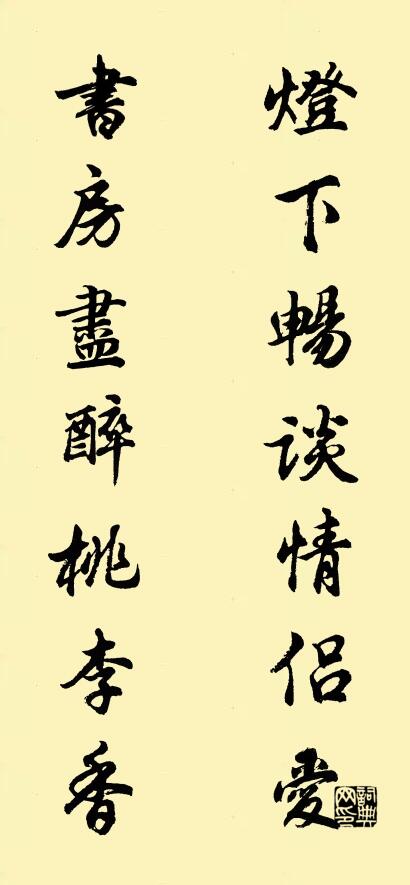 燈下暢談情侣愛
書房盡醉桃李香
詞典網